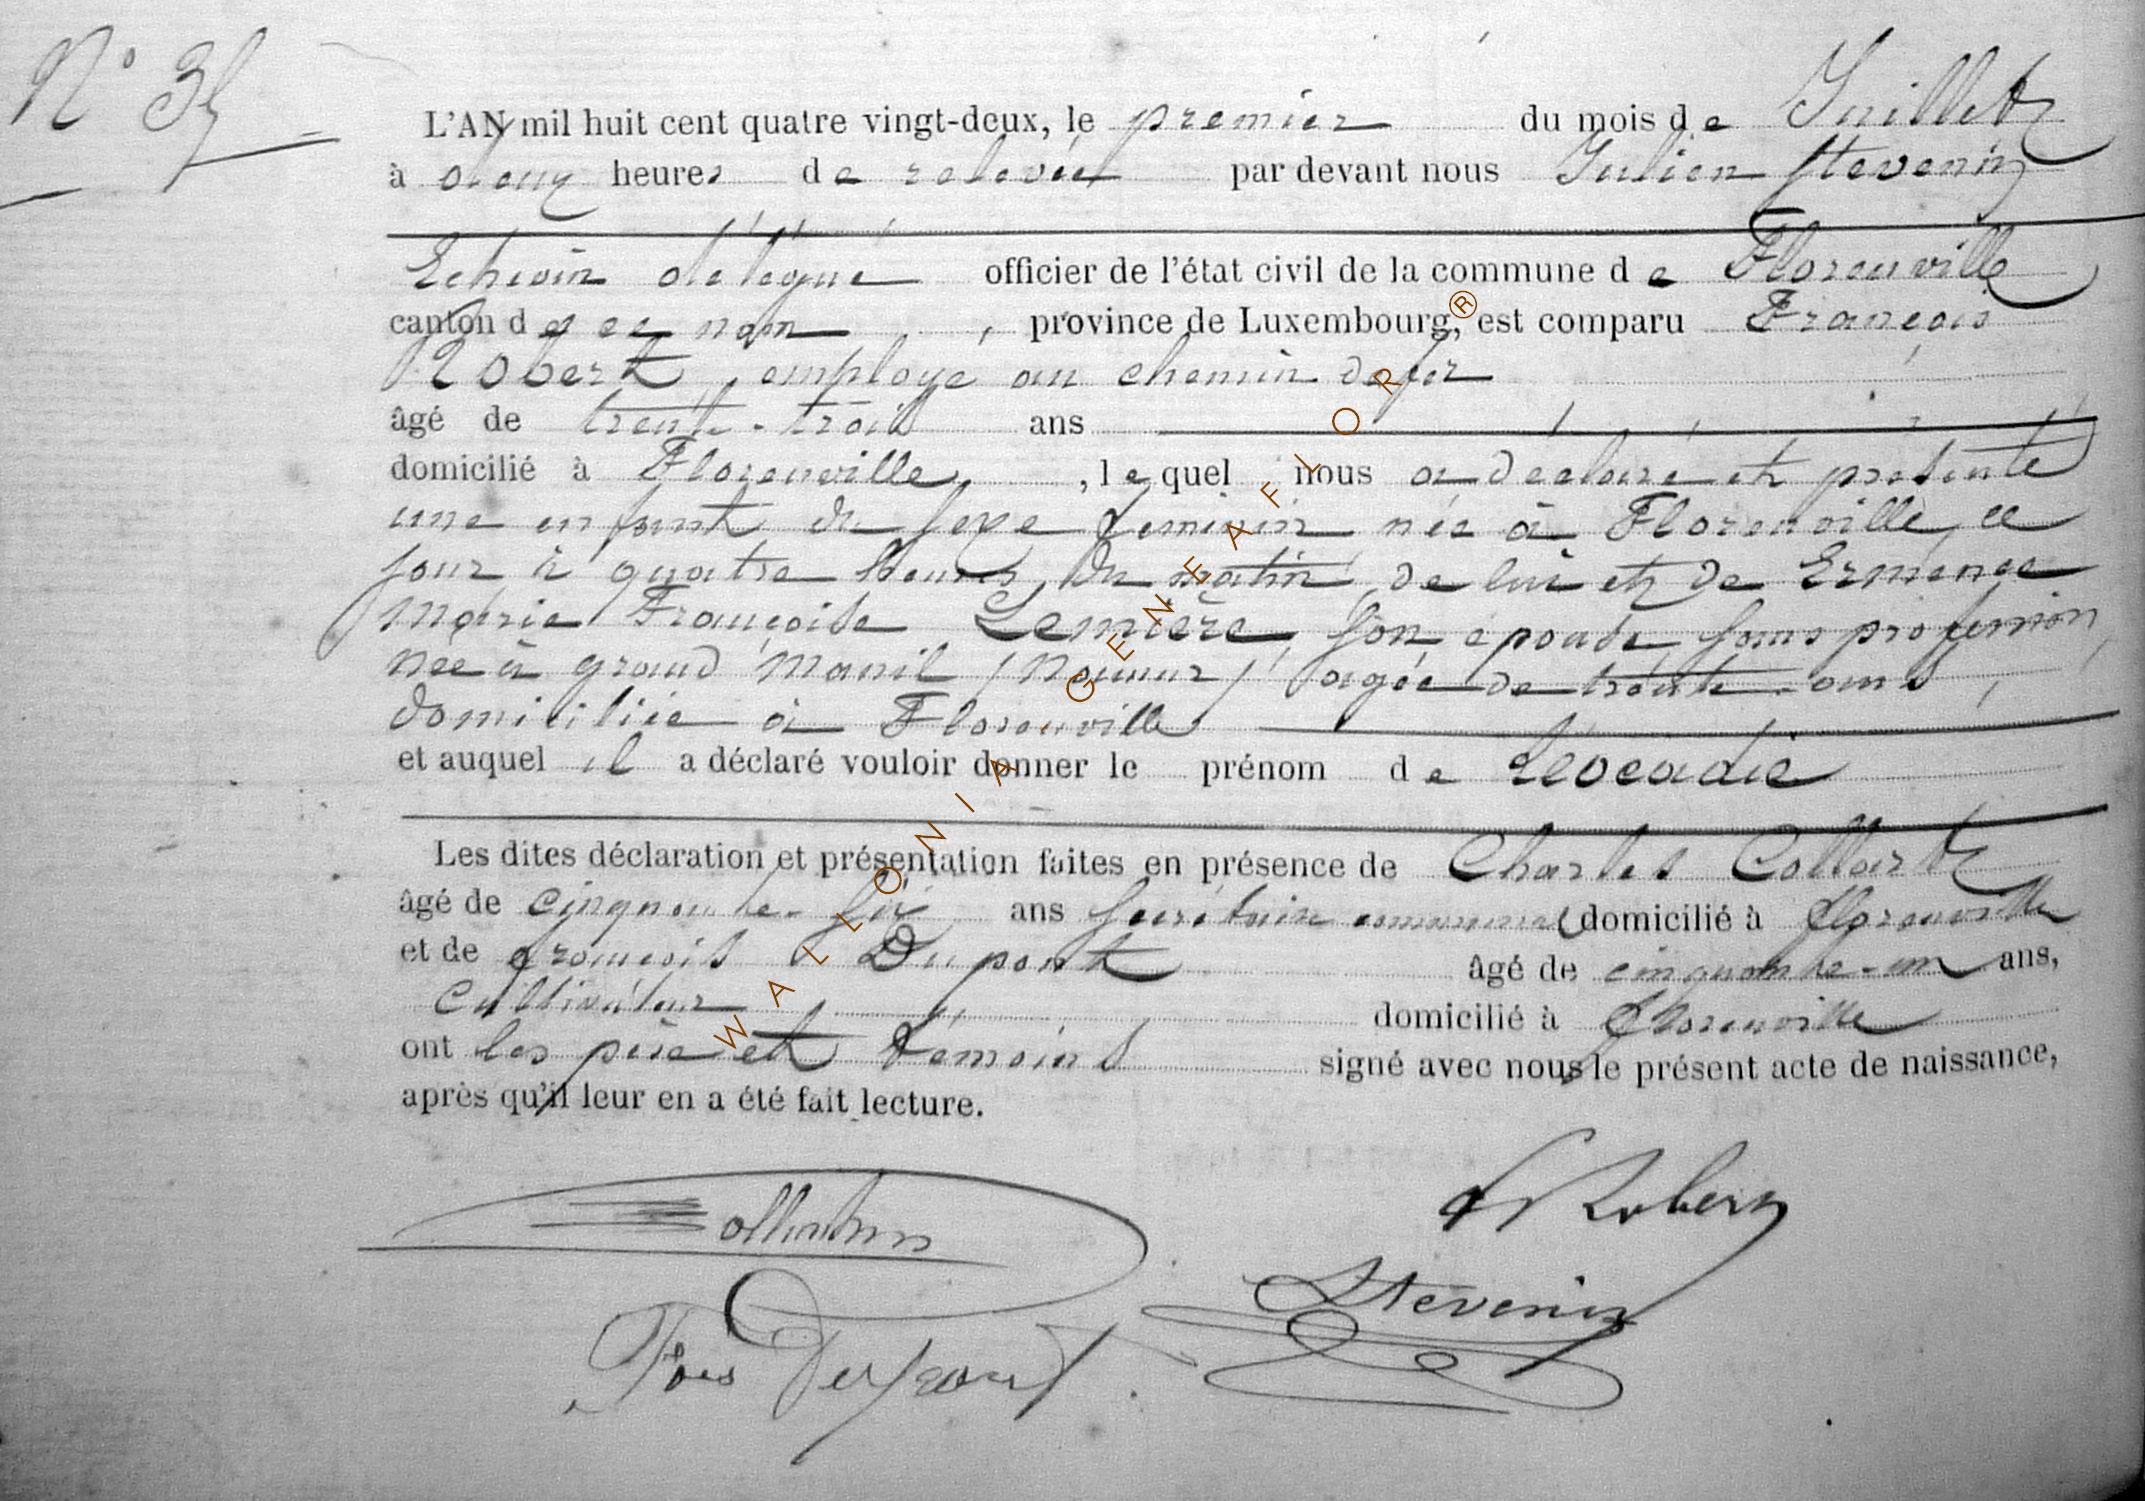 N° 35
L'AN mil huit cent quatre vingt-deux, le premier du mois de Juillet
à deux heures de relevée par devant nous Julien Stevenin
Echevin délégué officier de l'état civil de la commune de Florenville
canton de ce nom, province de Luxembourg, est comparu François
Robert, employé au chemin de fer
âgé de trente-trois ans
domicilié à Florenville, lequel nous a déclaré et présenté
une enfant du sexe féminin née à Florenville, ce
jour à quatre heures du matin, de lui et de Ermence
Marie Françoise Lemière, son épouse sans profession,
née à grand Manil (Namur) agée de trente ans,
domiciliée à Florenville
et auquel il a déclaré vouloir donner le prénom de Léocadie
Les dites déclaration et présentation faites en présence de Charles Collart
âgé de cinquante-six ans secrétaire communal domicilié à Florenville
et de françois Dupont âgé de cinquante-un ans,
Cultivateur domicilié à Florenville
ont les père et témoins signé avec nous le présent acte de naissance,
après qu'il leur en a été fait lecture.
F Robert
Stevenin
Fois Dupont
WALLONIA . GENEAFLOR®